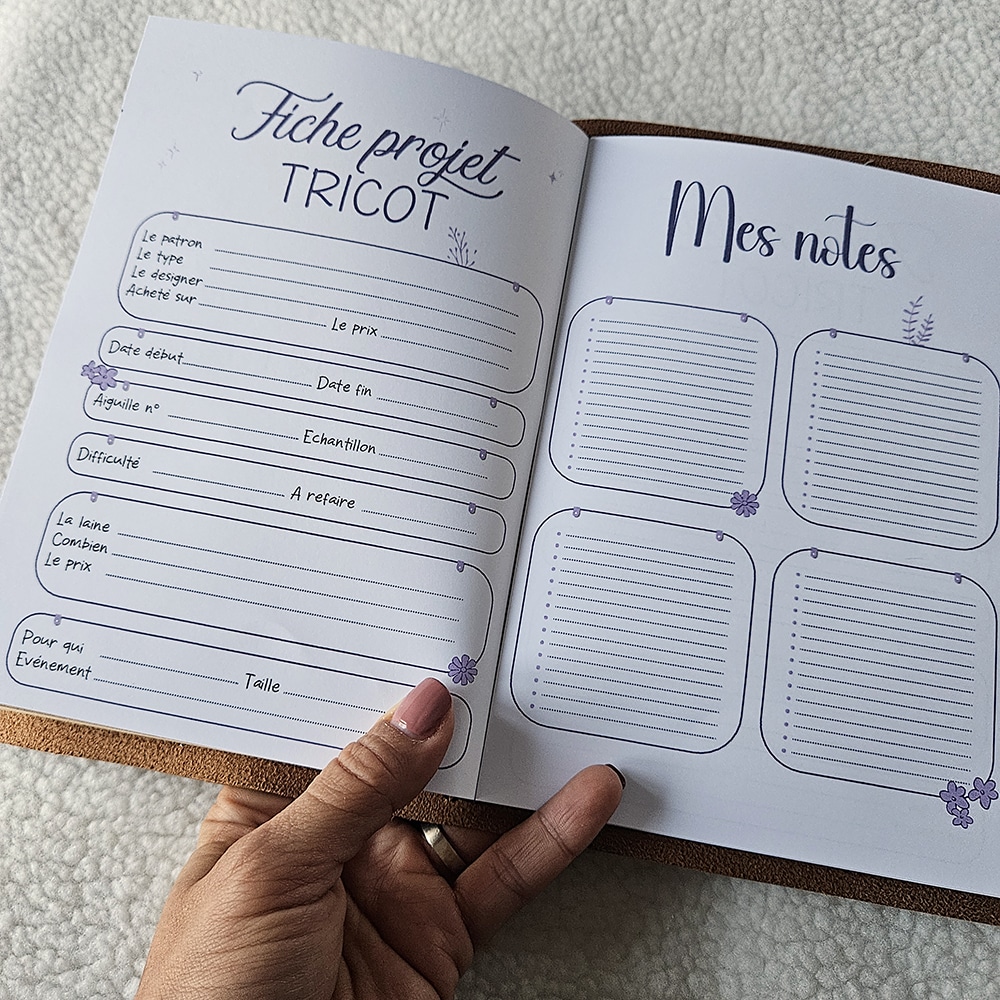 Fiche projet
TRICOT
Le patron
Le type
Le designer
Acheté sur Le prix
Date début Date fin
Aiguille n° Echantillon
Difficulté A refaire
La laine
Combien
Le prix
Pour qui
Evénement Taille
Mes notes